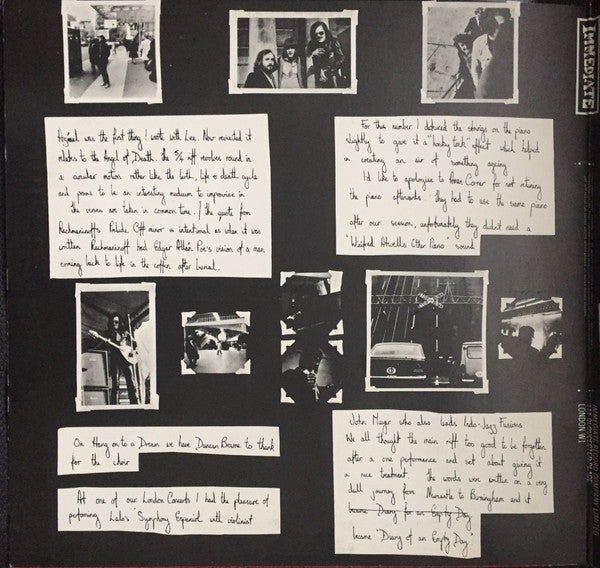 IMMEDIATE
was the first thing I wrote with Lee. Now revisited it
relates to the Angel of Death. The 5/4 riff revolves round in
a circular motion rather like the birth, life & death cycle
and proves to be an interesting medium to improvise in
the verses are taken in common time. / The quote from
Rachmaninoff's Prelude C# minor is intentional as when it was
written Rachmaninoff had Edgar Allan Poe's vision of a man
coming back to life in the coffin after burial.
For this number I detuned the strings on the piano
slightly to give it a "honky tonk" effect which helped
in creating an air of something ageing.
I'd like to apologise to Amen Corner for not retuning
the piano afterwards. They had to use the same piano
after our session, unfortunately they didn't need a
'Winifred Atwell's Other Piano' sound
On Hang on to a Dream we have Duncan Browne to thank
for the choir
At one of our London Concerts I had the pleasure of
performing Lalo's 'Symphony Espaniol' with violinist
John Mayer who also leads Indo-Jazz Fusions
We all thought the main riff too good to be forgotten
after a one performance and set about giving it
a nice treatment. the words were written on a very
dull journey from Newcastle to Birmingham and it
became Diary for an Empty Day
became 'Diary of an Empty Day'
LONDON W1